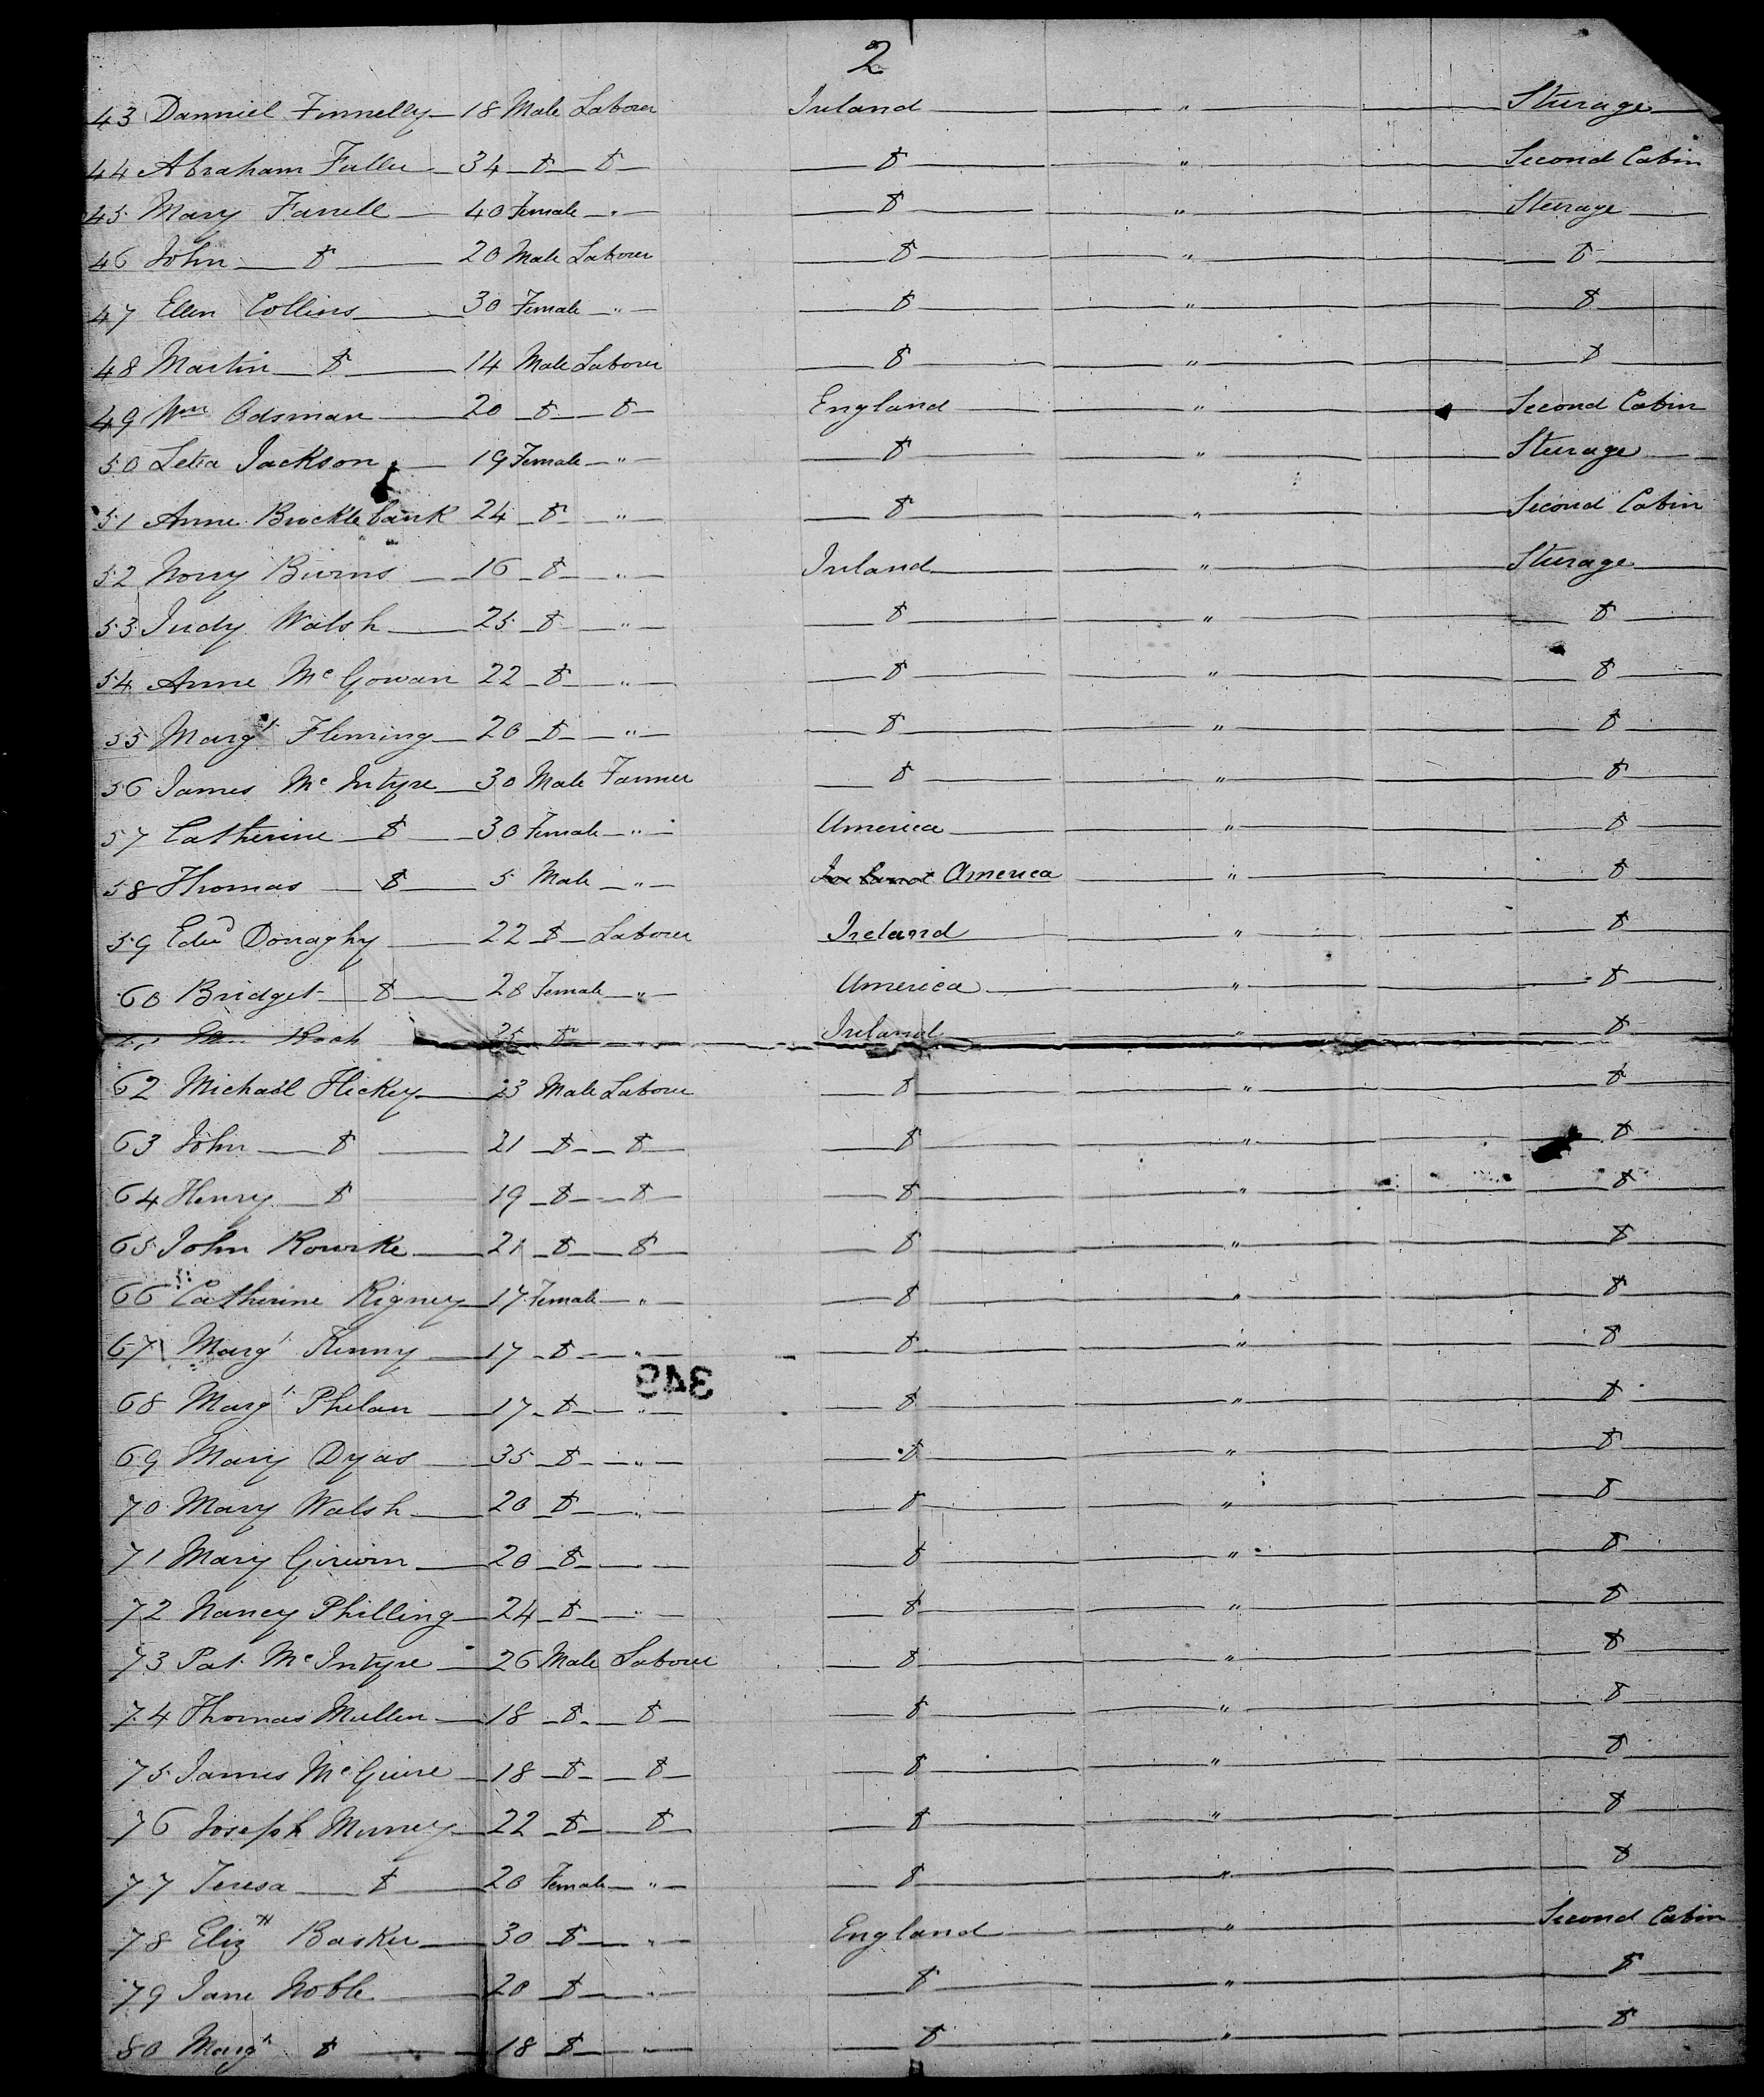 2
43 Danniel Finnelly 18 Male Laborer Ireland " Sturage
44 Abraham Fuller 34 Do Do Do " Second Cabin
45 Mary Farrell 40 Female " Do " Sturage
46 John Do 20 Male Laborer Do " Do
47 Ellen Collins 30 Female " Do " Do
48 Martin Do 14 Male Laborer Do " Do
49 Wm Odsman 20 Do Do England " Second Cabin
50 Letia Jackson 19 Female " Do " Sturage
51 Anne Brocklebank 24 Do " Do " Second Cabin
52 Norry Burns 16 Do " Ireland " Sturage
53 Judy Walsh 25 Do " Do " Do
54 Anne McGowan 22 Do " Do " Do
55 Margt Fleming 20 Do " Do " Do
56 James McIntyre 30 Male Farmer Do " Do
57 Catherine Do 30 Female " America " Do
58 Thomas Do 5 Male " Ireland America " Do
59 Edwd Donaghy 22 Do Laborer Ireland " Do
60 Bridget Do 28 Female " America " Do
Roch 25 Do " Ireland " Do
62 Michael Hickey 23 Male Laborer Do " Do
63 John Do 21 Do Do Do " Do
64 Henry Do 19 Do Do Do " Do
65 John Rourke 21 Do Do Do " Do
66 Catherine Rigney 17 Female " Do " Do
67 Margt Kenny 17 Do " Do " Do
349
68 Margt Phelan 17 Do " Do " Do
69 Mary Dyas 35 Do " Do " Do
70 Mary Walsh 20 Do " Do " Do
71 Mary Girwin 20 Do " Do " Do
72 Nancy Philling 24 Do " Do " Do
73 Pat McIntyre 26 Male Laborer Do " Do
74 Thomas Mullen 18 Do Do Do " Do
75 James McGuire 18 Do Do Do " Do
76 Joseph Murrey 22 Do Do Do " Do
77 Teresa Do 20 Female " Do " Do
78 Elizth Basker 30 Do " England " Second Cabin
79 Jane Noble 20 Do " Do " Do
80 Margt Do 18 Do " Do " Do